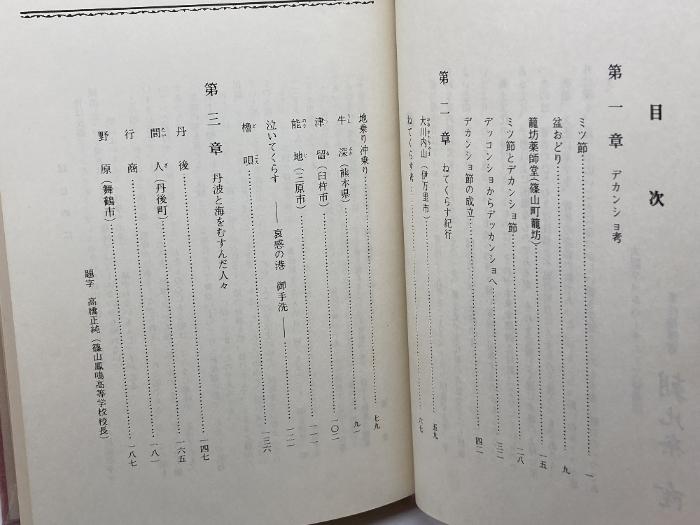 目次
第一章 デカンショ考
ミツ節……一
盆おどり……九
籠坊薬師堂(篠山町籠坊)……一五
ミツ節とデカンショ節……一八
デッコンショからデッカンショへ……三二
デカンショ節の成立……四二
第二章 ねてくらす紀行
大川内山(伊万里市)……五九
ねてくらす考……六七
地乗り沖乗り……七九
牛深(熊本県)……九一
津留(臼杵市)……一〇二
能地(三原市)……一一一
泣いてくらす ――哀感の港 御手洗――……一二一
櫓唄……一三六
第三章 丹波と海をむすんだ人々
丹後……一四七
間人(丹後町)……一六五
行商……一八一
野原(舞鶴市)……一八七
題字 高橋正純(篠山鳳鳴高等学校校長)